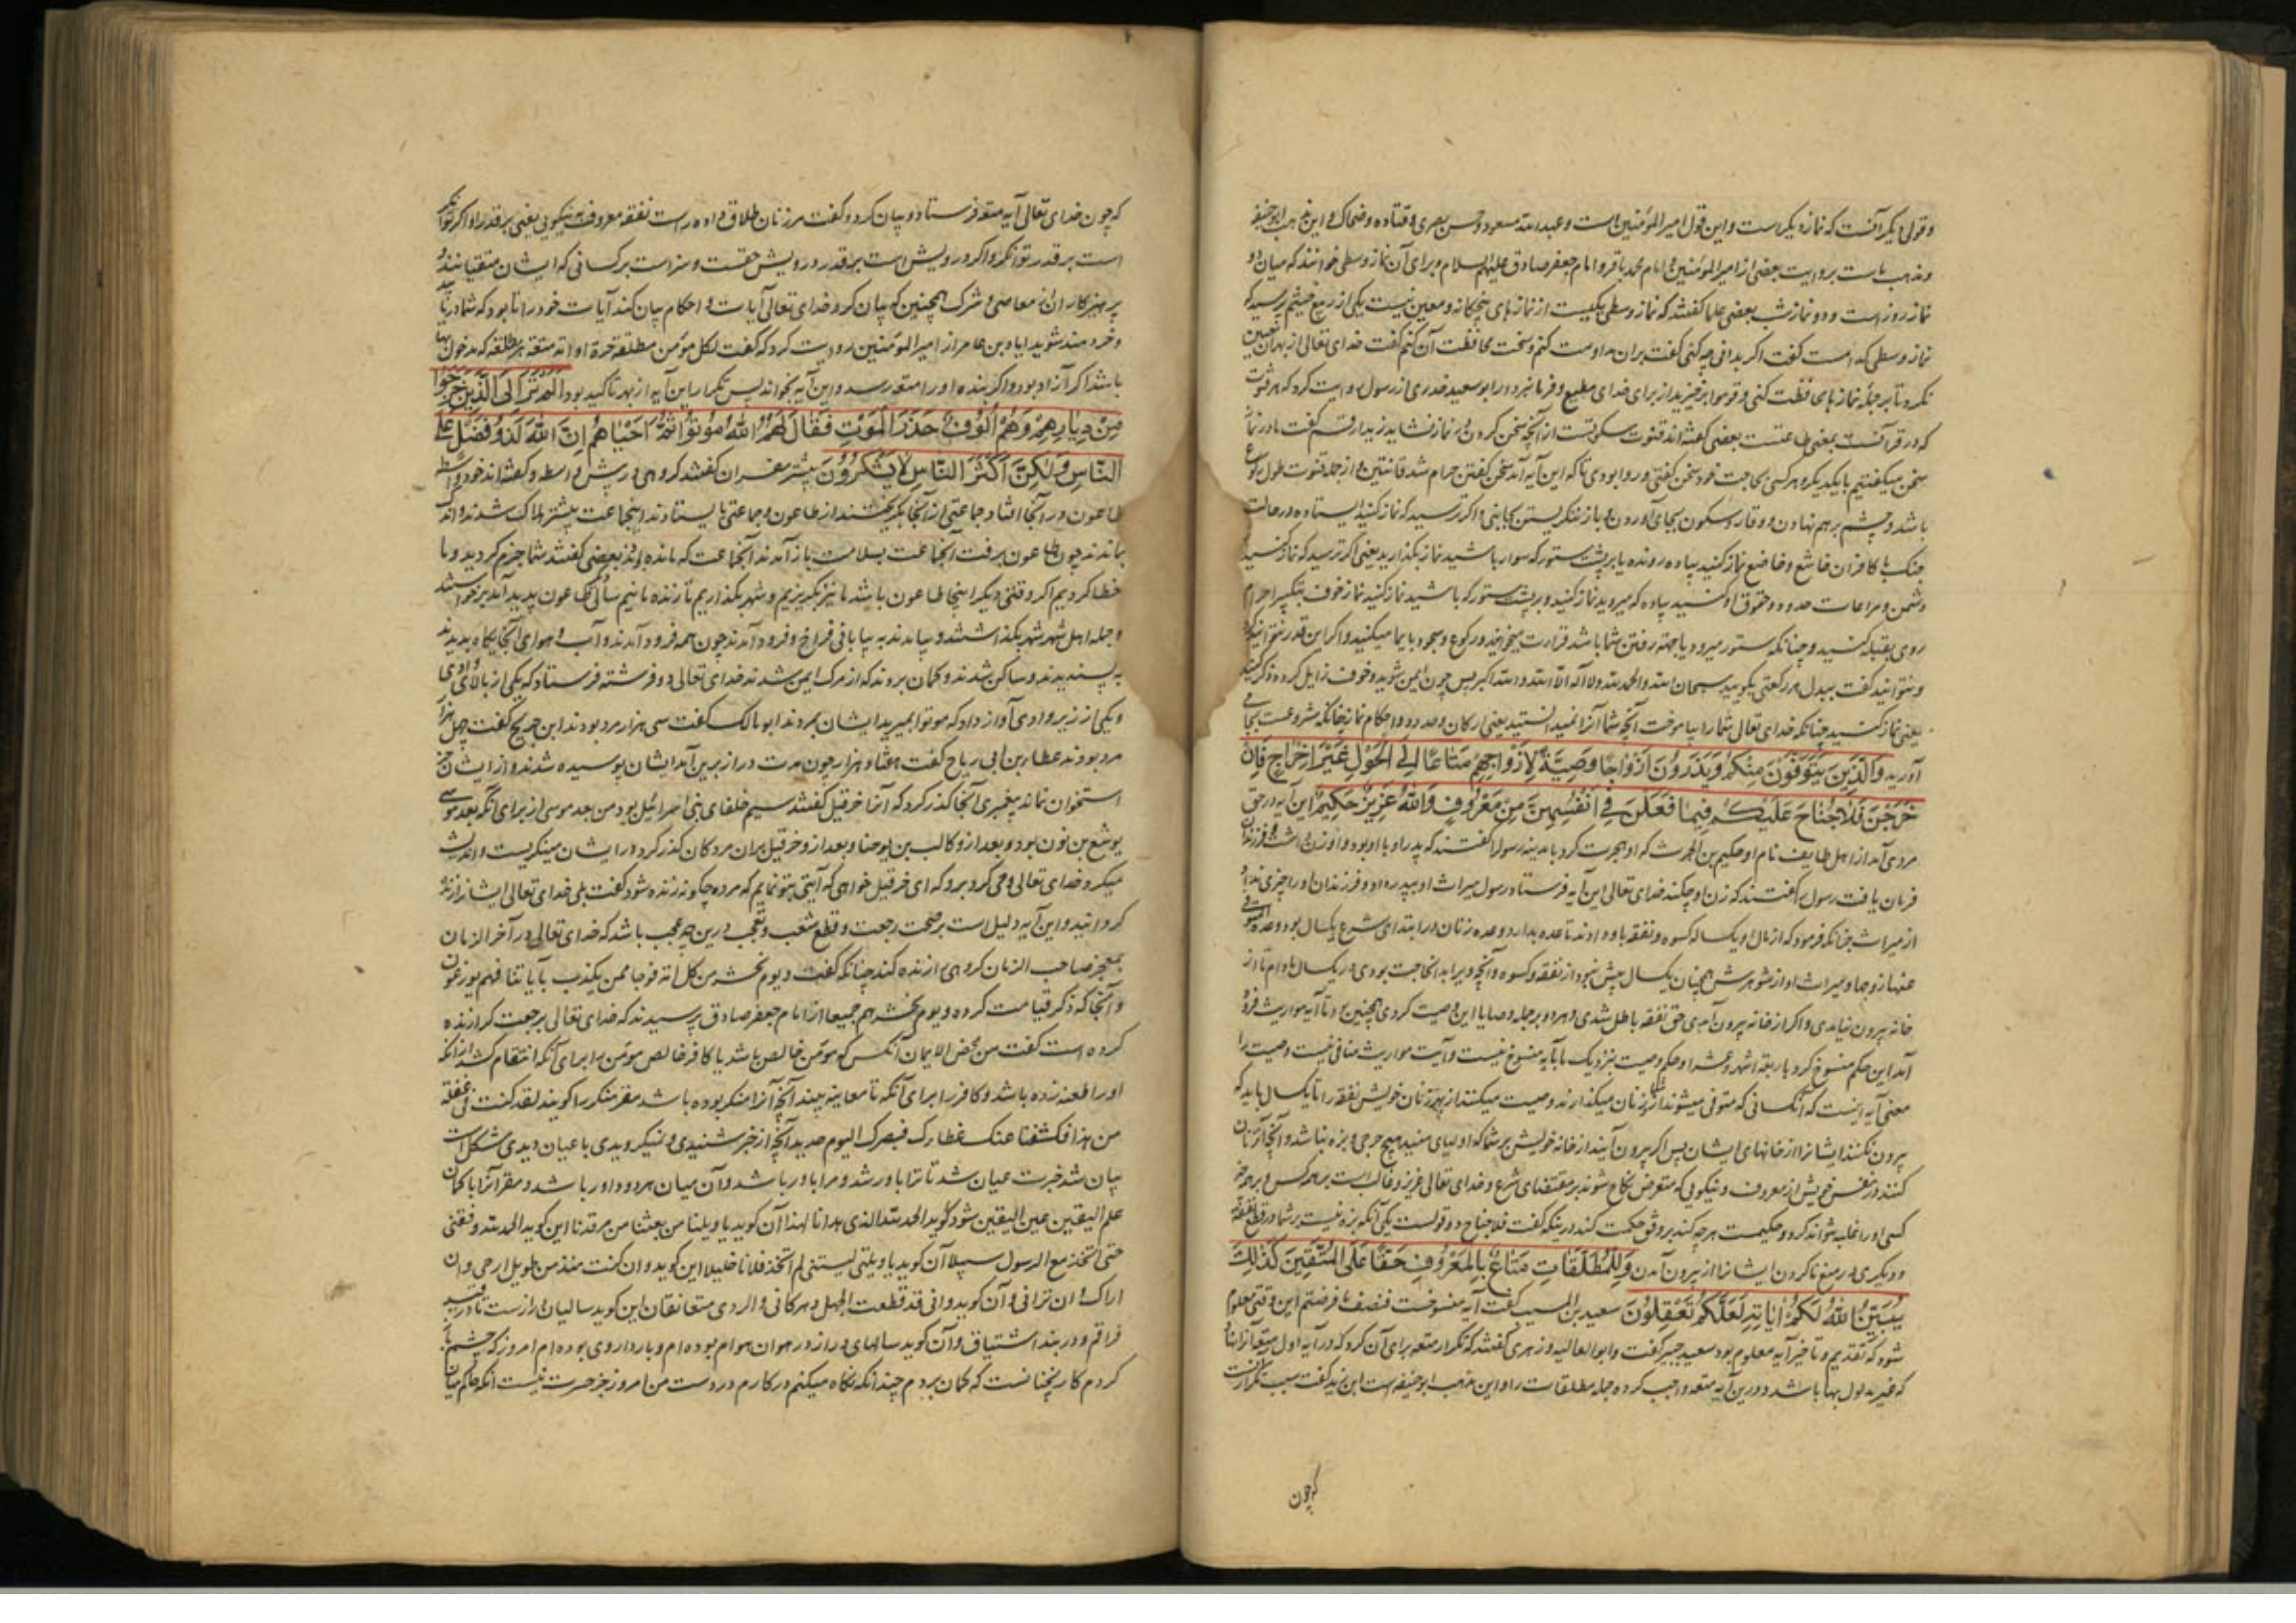 وقولی دیگر آنست که نماز دیگر است و این قول امیر المؤمنین است و عبد الله مسعود و حسن بصری و قتاده و ضحاک و این مذهب ابو حنیفه
و مذهب ماست بروایت بعضی از امیر المؤمنین و امام محمد باقر و امام جعفر صادق علیهم السلام و برای آن نماز وسطی خوانند که میان دو
نماز روز است و دو نماز شب بعضی علما گفتند که نماز وسطی یکیست از نمازهای پنجگانه و معین نیست یکی از ربیع خثیم پرسید که
نماز وسطی کدامست گفت اگر بدانی چه کنی گفت بران مداومت کنم و سخت محافظت آن کنم گفت خدای تعالی از بهر آن تعیین
نکرد تا بر جمله نمازها محافظت کنی و قوموا برخیزید از برای خدای مطیع و فرمانبردار ابو سعید خدری از رسول روایت کرد که هر قنوت
که در قرآنست بمعنی طاعتست بعضی گفته‌اند قنوت سکوتست از آنچه سخن کردن در نماز نشاید زید ارقم گفت ما در نماز
سخن میگفتیم با یکدیگر و هر کسی بحاجت خود سخن گفتی و روا بودی تا که این آیه آمد سخن گفتن حرام شد قانتین و از جمله قنوت طول رکوع
باشد و چشم بر هم نهادن و وقار و سکون بجای آوردن و باز ننگریستن بجانبی و اگر ترسید که نماز کنید ایستاده در حالت
جنگ با کافران خاشع و خاضع نماز کنید پیاده رونده یا بر پشت ستور که سوار باشید نماز بگذارید یعنی اگر ترسید که نماز کنید
دشمن و مراعات حدود و حقوق او کنید پیاده که میروید نماز کنید و بر پشت ستور که باشید نماز کنید نماز خوف بتکبیر احرام
روی بقبله کنید و چنانکه ستور میرود یا جهة رفتن شما باشد قراءت میخوانید و رکوع و سجود بایما میکنید و اگر این قدر نتوانید کرد
و نتوانید گفت ببدل هر رکعتی بگویید سبحان الله و الحمد لله و لا اله الا الله و الله اکبر پس چون ایمن شوید و خوف زایل گردد ذکر کنید
یعنی نماز کنید چنانکه خدای تعالی شما را بیاموخت آنچه شما آنرا نمیدانستید یعنی ارکان و حدود و احکام نماز چنانکه مشروعست بجای
آورید وَالَّذِينَ يُتَوَفَّوْنَ مِنْكُمْ وَيَذَرُونَ أَزْوَاجًا وَصِيَّةً لِأَزْوَاجِهِمْ مَتَاعًا إِلَى الْحَوْلِ غَيْرَ إِخْرَاجٍ فَإِنْ
خَرَجْنَ فَلَا جُنَاحَ عَلَيْكُمْ فِيمَا فَعَلْنَ فِي أَنْفُسِهِنَّ مِنْ مَعْرُوفٍ وَاللهُ عَزِيزٌ حَكِيمٌ این آیه در حق
مردی آمد از اهل طایف نام او حکیم بن الحرث که او هجرت کرد با مدینه رسول گفتند که پدر او با او بود و او زن داشت و فرزندان
فرمان یافت رسول را گفتند که زن او چکند خدای تعالی این آیه فرستاد رسول میراث او بپدر داد و فرزندان او را چیزی نداد
از میراث بزانکه فرمود که از مال او یکساله کسوه و نفقه باو دادند تا عده بدارد و عده زنان در ابتدای شرع یکسال بود وعده المتوفی
عنها زوجها و میراث او از شوهرش همچنان یکسال بیش نبود از نفقه و کسوه و آنچه ویرا بدان حاجت بودی در یکسال مادام تا از
خانه بیرون نیامدی و اگر از خانه بیرون آمدی حق نفقه باطل شدی و مرد در جمله وصایا این وصیت کردی همچنین بود تا آیه مواریث فرو
آمد این حکم منسوخ کرد باربعة اشهر و عشرا و حکم وصیت بنزدیک ما بآیه منسوخ نیست و آیت مواریث منافی نیست وصیت را
معنی آیه اینست که آنکسانی که متوفی میشوند از شما و زنان میگذارند وصیت میکنند از بهر زنان خویش نفقه را تا یکسال باید که
بیرون نکنند ایشانرا از خانهای ایشان پس اگر بیرون آیند از خانه خویش بر شما که اولیای میتید هیچ حرجی و بزه نباشد و آنچه آن زنان
کنند در نفس خویش از معروف و نیکویی که متعرض نکاح شوند بر مقتضای شرع و خدای تعالی عزیز و غالب است بر هر کس و بر هر چیز
کسی او را غلبه نتواند کرد و حکیمست هر چه کند بر وفق حکمت کند در اینکه گفت فلا جناح دو قولست یکی آنکه بزه نیست بر شما در قطع نفقه
و دیگری در منع ناکردن ایشانرا از بیرون آمدن وَلِلْمُطَلَّقَاتِ مَتَاعٌ بِالْمَعْرُوفِ حَقًّا عَلَى الْمُتَّقِينَ كَذَلِكَ
يُبَيِّنُ اللهُ لَكُمْ آيَاتِهِ لَعَلَّكُمْ تَعْقِلُونَ سعید بن المسیب گفت آیه منسوخست فنصف ما فرضتم این وقتی معلوم
شود که تقدیم و تاخیر آیه معلوم بود سعید جبیر گفت و ابو العالیه و زهری گفتند که تکرار متعه برای آن کرد که در آیه اول متعه آنرا بود
که غیر مدخول بها باشد و درین آیه متعه واجب کرد جمله مطلقات را و این مذهب ابو حنیفه است ابن زید گفت سبب تکرار آنست
که چون
که چون خدای تعالی آیه متعه فرستاد و بیان کرد و گفت مر زنان طلاق داده راست نفقه معروف بنیکویی یعنی بر قدر او اگر توانگر
است بر قدر توانگر و اگر درویش است بر قدر درویش حقست و سزاست بر کسانی که ایشان متقیانند و
پرهیزکاران از معاصی و شرک همچنین که بیان کرد خدای تعالی آیات و احکام بیان کند آیات خود را تا بود که شما دریابید
و خردمند شوید ایاد بن عامر از امیر المؤمنین روایت کرد که گفت لکل مؤمن مطلقة حرة او امة متعة هر مطلقه که مدخول بها
باشد اگر آزاد بود و اگر بنده او را متعه رسد و این آیه بخواند پس تکرار این آیه از بهر تاکید بود أَلَمْ تَرَ إِلَى الَّذِينَ خَرَجُوا
مِنْ دِيَارِهِمْ وَهُمْ أُلُوفٌ حَذَرَ الْمَوْتِ فَقَالَ لَهُمُ اللهُ مُوتُوا ثُمَّ أَحْيَاهُمْ إِنَّ اللهَ لَذُو فَضْلٍ عَلَى
النَّاسِ وَلَكِنَّ أَكْثَرَ النَّاسِ لَا يَشْكُرُونَ بیشتر مفسران گفتند که دهی در پیش واسط و گفته‌اند خود واسط
طاعون در آنجا افتاد جماعتی از آنجا بگریختند از طاعون و جماعتی بایستادند اینجماعت بیشتر هلاک شدند و اندک
بماندند چون طاعون برفت آنجماعت بسلامت باز آمدند آنجماعت که مانده بودند بعضی گفتند شما جزم کردید و ما
خطا کردیم اگر وقتی دیگر اینجا طاعون باشد ما نیز بگریزیم و شهر بگذاریم تا زنده مانیم سالی دیگر طاعون پدید آمد برخواستند
و جمله اهل شهر شهر بگذاشتند و بیامدند به بیابانی فراخ و فرود آمدند چون همه فرود آمدند و آب و هوای آن جایگاه بدیدند
به پسندیدند و ساکن شدند و گمان بردند که از مرگ ایمن شدند خدای تعالی دو فرشته فرستاد که یکی از بالای وادی
و یکی از زیر وادی آواز داد که موتوا بمیرید ایشان بمردند ابو مالک گفت سی هزار مرد بودند ابن جریج گفت چهل هزار
مرد بودند عطاء بن ابی رباح گفت هفتاد هزار چون مدت دراز برین آمد ایشان پوسیده شدند و از ایشان جز
استخوان نماند پیغمبری آنجا گذر کرد که آنرا خرقیل گفتند سیم خلفای بنی اسرائیل بود من بعد موسی از برای آنکه بعد موسی
یوشع بن نون بود و بعد ازو کالب بن یوحنا و بعد ازو خرقیل بران مردگان گذر کرد در ایشان مینگریست و اندیشه
میکرد خدای تعالی وحی کرد برو که ای خرقیل خواهی که آیتی بتو نمایم که مرده چگونه زنده شود گفت بلی خدای تعالی ایشانرا زنده
گردانید و این آیه دلیل است بر صحت رجعت و قطع شغب و تعجب درین چه عجب باشد که خدای تعالی در آخر الزمان
بمعجز صاحب الزمان گروهی را زنده کند چنانکه گفت و یوم نحشر من کل امة فوجا ممن یکذب بآیاتنا فهم یوزعون
و آنجا که ذکر قیامت کرده و یوم نحشرهم جمیعا از امام جعفر صادق پرسیدند که خدای تعالی برجعت کرا زنده
کرده است گفت من محض الایمان آنکس که مؤمن خالص باشد یا کافر خالص مؤمن برای آنکه انتقام کشد از آنکه
او را طعنه زده باشد و کافر را برای آنکه تا معاینه بیند آنچه آنرا منکر بوده باشد مقر منکر را گویند لقد کنت فی غفلة
من هذا فکشفنا عنک غطاءک فبصرک الیوم حدید آنچه از خبر شنیدی و نمیگرویدی با عیان دیدی شکل است
بیان شد خبرت عیان شد تا ترا باور شد و مرا باور باشد و آن میان هر دو داور باشد و مقر آنرا با گمان
علم الیقین عین الیقین شود گوید الحمد لله الذی هدانا لهذا آن گوید یا ویلنا من بعثنا من مرقدنا این گوید الحمد لله وفقنی
حتی اتخذ مع الرسول سبیلا آن گوید یا ویلتی لیتنی لم اتخذ فلانا خلیلا این گوید و ان کنت منذ من طویل ارجی و ان
اراک و ان ترانی و آن گوید وانی قد قطعت الجهل دهرکانی و الردی متعانقان این گوید سالیان دراز ست تا در بند
فراقم و در بند اشتیاق و آن گوید سالهای دراز در هوان هوا م بوده‌ام و با ردا روی بوده‌ام امروز که چشم باز
کردم کار نچنانست که گمان بردم چندانکه نگاه میکنم در کارم در دست من امروز جز حسرت نیست آنکه حاکم میان